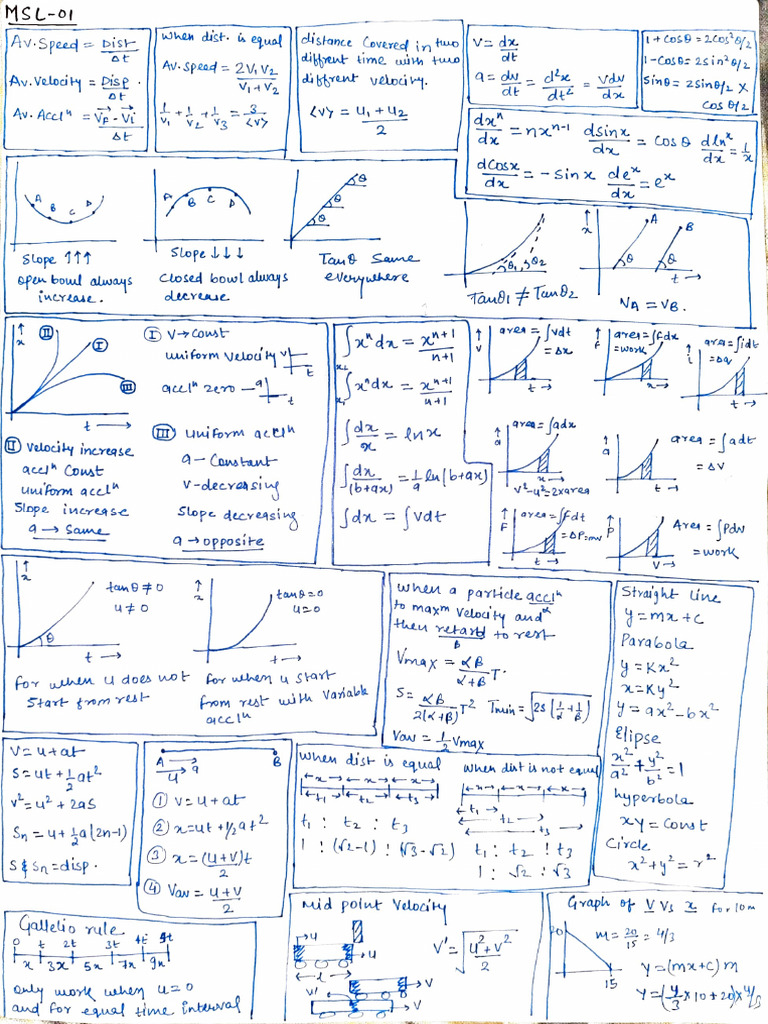 MSL-01
Av. Speed = Dist / Δt
Av. Velocity = Disp. / Δt
Av. Acclⁿ = V⃗F - V⃗i / Δt
when dist. is equal
Av. Speed = 2V₁V₂ / V₁+V₂
1/V₁ + 1/V₂ + 1/V₃ = 3/<V>
distance Covered in two
diffrent time with two
diffrent velocity.
<V> = u₁ + u₂ / 2
V = dx/dt
a = dv/dt = d²x/dt² = Vdv/dx
1 + cosθ = 2cos²θ/2
1 - cosθ = 2sin²θ/2
Sinθ = 2sinθ/2 ×
cosθ/2
dxⁿ/dx = nxⁿ⁻¹ dsinx/dx = cosθ dlnˣ/dx = 1/x
dcosx/dx = -sinx deˣ/dx = eˣ
A B C D
Slope ↑↑↑
open bowl always
increase.
A B C D
Slope ↓↓↓
Closed bowl always
decrease
θ θ θ
Tanθ Same
everywhere
θ₁ θ₂
Tanθ₁ ≠ Tanθ₂
x A B
θ θ t →
VA = VB.
x II I III
t →
I V → Const
uniform velocity V t
acclⁿ zero - a t
II Velocity increase
acclⁿ Const
uniform acclⁿ
Slope increase
a → Same
III uniform acclⁿ
a - Constant
v - decreasing
Slope decreasing
a → opposite
∫xⁿdx = xⁿ⁺¹ / n+1
∫xⁿdx = xⁿ⁺¹ / n+1
∫dx/x = lnx
∫dx/(b+ax) = 1/a ln(b+ax)
∫dx = ∫Vdt
V area = ∫vdt
= Δx
t →
F area = ∫Fdx
= work
x →
i area = ∫idt
= Δq
t →
a area = ∫adx
x →
V²-u² = 2×area
a area = ∫adt
= ΔV
t →
F area = ∫Fdt
= ΔP = mv
t →
P Area = ∫Pdv
= work
V →
x tanθ ≠ 0
u ≠ 0
θ
t →
for when u does not
Start from rest
x tanθ = 0
u = 0
t →
for when u start
from rest with Variable
acclⁿ
when a particle acclⁿ
α
to maxm velocity and
then retard to rest
β
Vmax = αβ / α+β T.
S = αβ / 2(α+β) T² Tmin = √2s(1/α + 1/β)
Vav = 1/2 Vmax
Straight line
y = mx + c
Parabola
y = Kx²
x = Ky²
y = ax² - bx²
Elipse
x²/a² + y²/b² = 1
hyperbola
xy = Const
Circle
x² + y² = r²
V = u + at
S = ut + 1/2 at²
v² = u² + 2as
Sn = u + 1/2 a(2n-1)
S & Sn = disp.
A u → a B
① V = u + at
② x = ut + 1/2 at²
③ x = (u+v)t / 2
④ Vav = u+v / 2
when dist is equal
x x x
t₁ t₂ t₃
t₁ : t₂ : t₃
1 : (√2-1) : (√3-√2)
when dist is not equal
x x x
t₁
t₂
t₃
t₁ : t₂ : t₃
1 : √2 : √3
Gallelio rule
0 t 2t 3t 4t
x 3x 5x 7x 9x
only work when u = 0
and for equal time interval
Mid point Velocity
u u
l
V' V
V
V' = √u² + v² / 2
Graph of V Vs x for 10m
20
15
m = 20/15 = 4/3
y = (mx+c) m